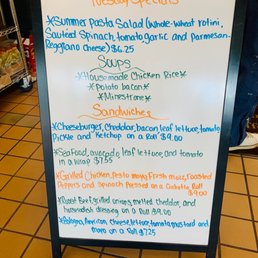 Tuesday Specials
*Summer Pasta Salad (Whole-Wheat rotini,
Sauteed Spinach, tomato, garlic and Parmesan-
Reggiano Cheese) $6.25
Soups
*Housemade Chicken Rice*
*Potato bacon*
*Minestrone*
Sandwiches
*Cheeseburger, Cheddar, bacon, leaf lettuce, tomato,
Pickle and Ketchup on a Roll $9.00
*Seafood, avocado, leaf lettuce and tomato
in a wrap $7.55
*Grilled Chicken, pesto mayo, Fresh mozz, Roasted
Peppers and Spinach Pressed on a Ciabatta Roll
$9.00
*Roast Beef, grilled onions, melted cheddar, and
horseradish dressing on a Roll $9.00
*Bologna, American Cheese, lettuce, tomato, mustard and
mayo on a Roll $7.25